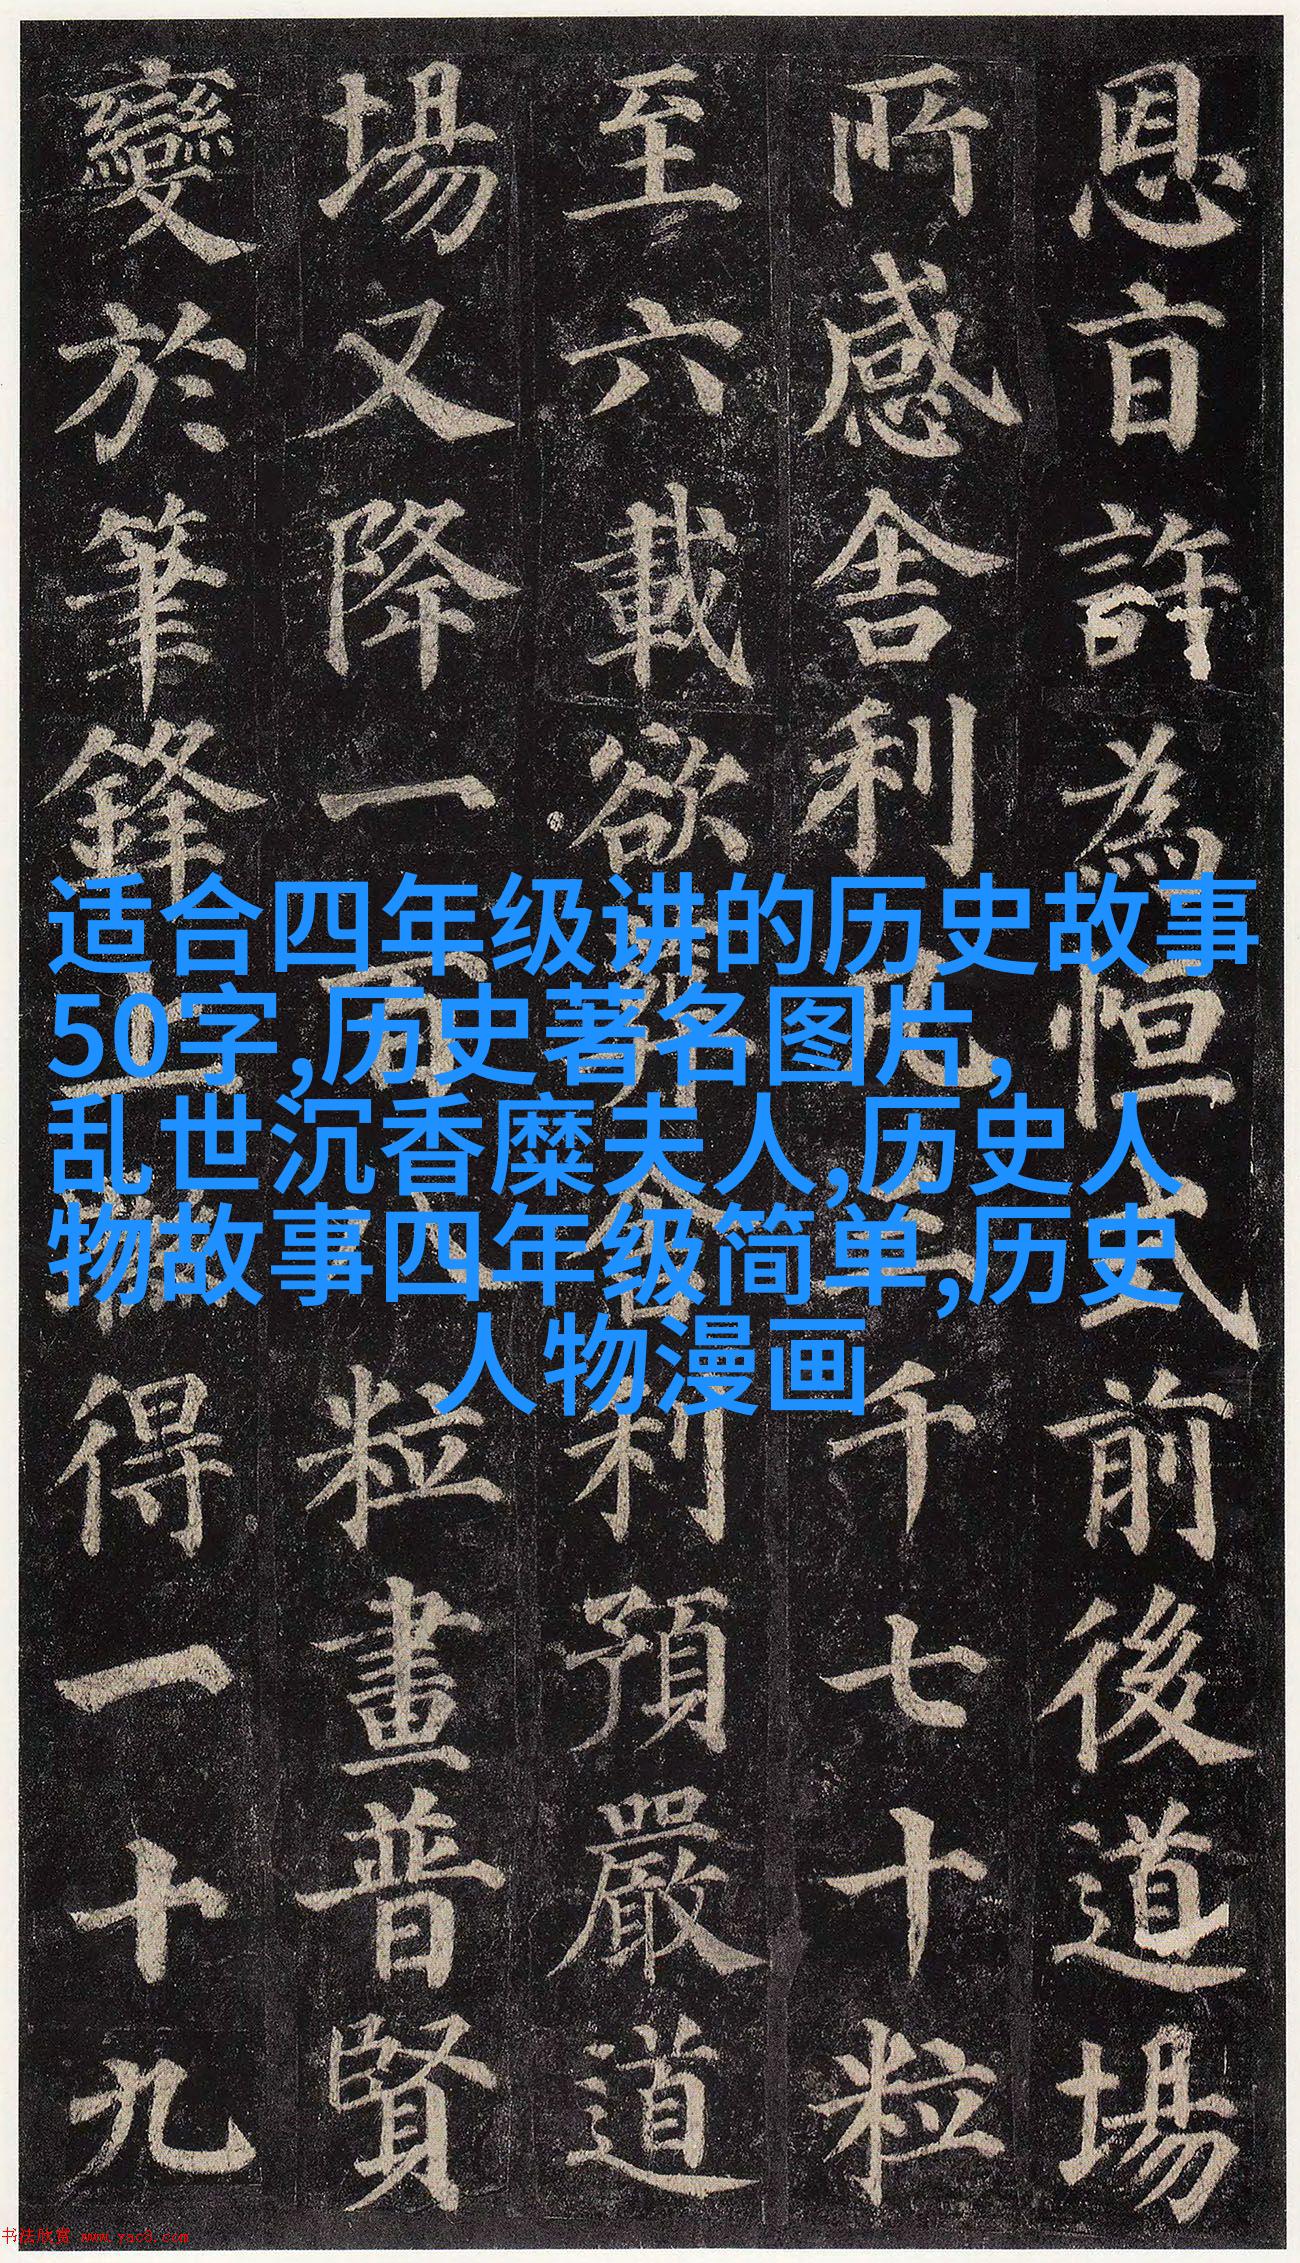 恩旨許為恒式前後道場
所感舍利凡三千七十粒
至六載欲葬舍利預嚴道
場又降一百八粒畫普賢
變於筆鋒上聯得一十九
适合四年级讲的历史故事
50字,历史著名图片,
乱世沉香糜夫人,历史人
物故事四年级简单,历史
人物漫画
书法欣赏 www.yac8.com